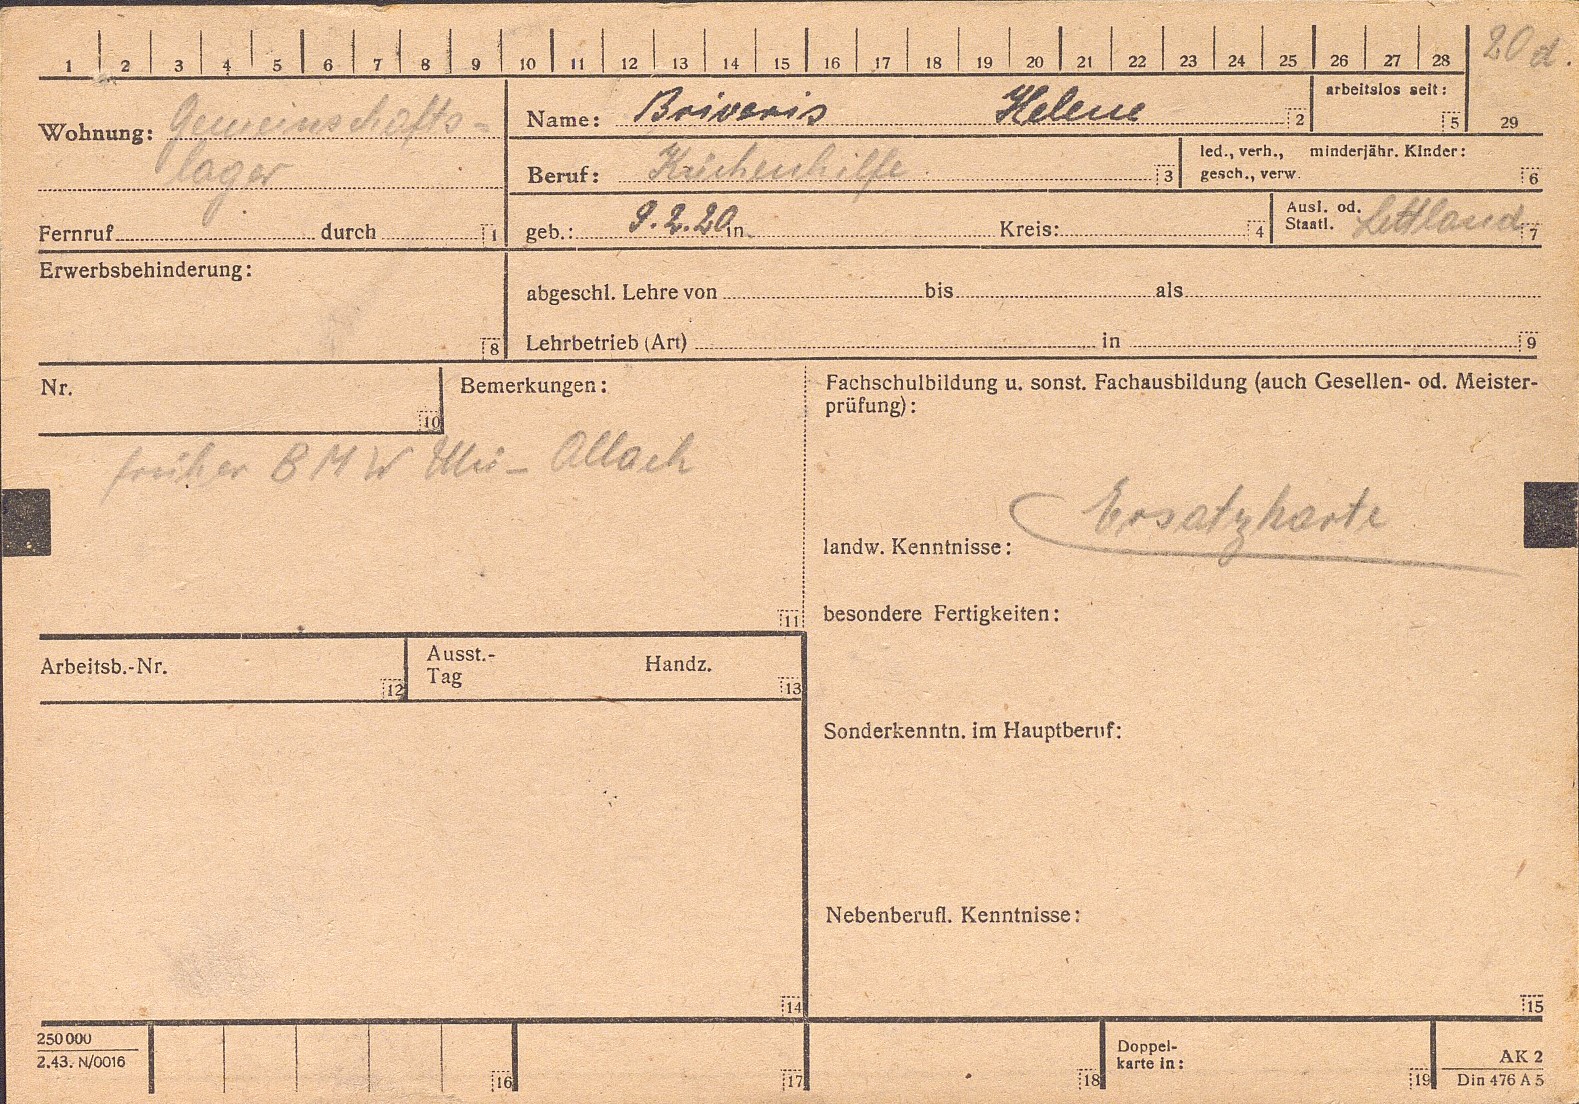 1 2 3 4 5 6 7 8 9 10 11 12 13 14 15 16 17 18 19 20 21 22 23 24 25 26 27 28 20 d.
Wohnung: Gemeinschafts-
lager
Fernruf durch 1
Name: Briveris Helene 2
arbeitslos seit:
5 29
Beruf: Küchenhilfe 3
led., verh., minderjähr. Kinder:
gesch., verw. 6
geb.: 9.2.20 in Kreis: 4
Ausl. od.
Staatl. Lettland 7
Erwerbsbehinderung:
8
abgeschl. Lehre von bis als
Lehrbetrieb (Art) in 9
Nr.
10
Bemerkungen:
früher BMW Mü- Allach
11
Fachschulbildung u. sonst. Fachausbildung (auch Gesellen- od. Meister-
prüfung):
Ersatzkarte
landw. Kenntnisse:
besondere Fertigkeiten:
Arbeitsb.-Nr. 12
Ausst.- Handz.
Tag 13
Sonderkenntn. im Hauptberuf:
Nebenberufl. Kenntnisse:
14 15
250 000
2.43. N/0016
16 17 18
Doppel-
karte in: 19
AK 2
Din 476 A 5